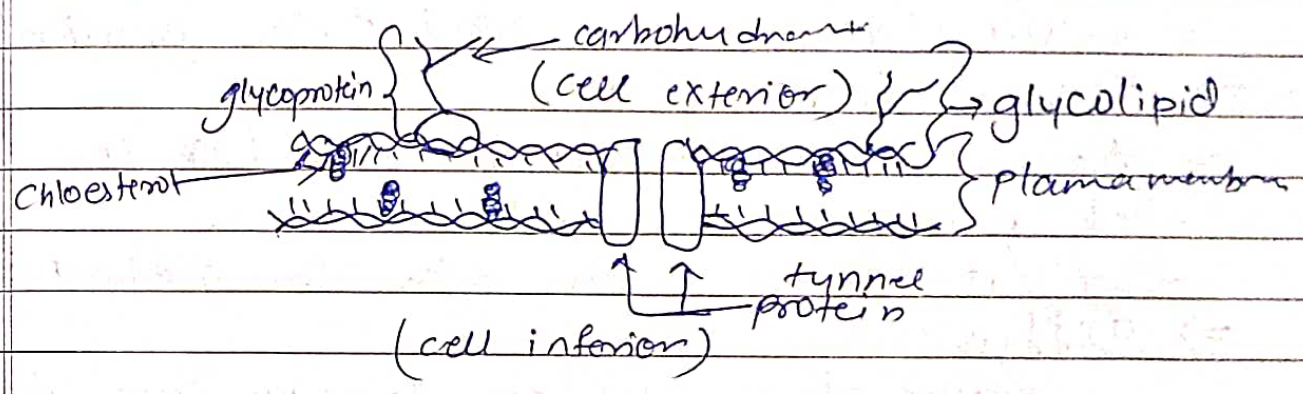 carbohydrate
glycoprotein
(cell exterior)
glycolipid
Chloesterol
Plamamembran
tynnel
protein
(cell inferior)